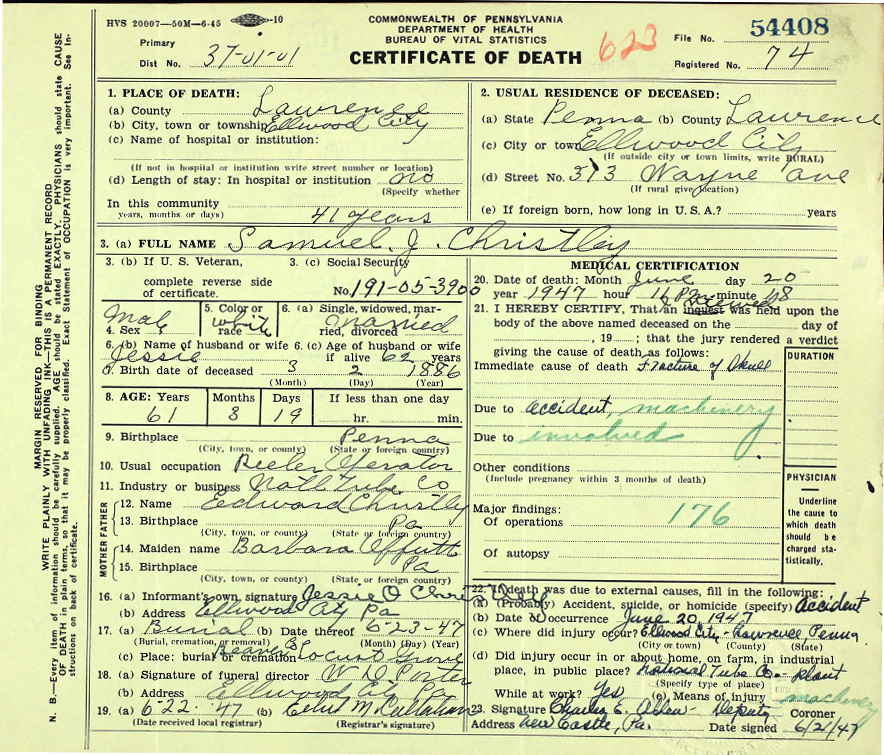 HVS 20007—50M—6-45 —10
COMMONWEALTH OF PENNSYLVANIA
DEPARTMENT OF HEALTH
BUREAU OF VITAL STATISTICS
CERTIFICATE OF DEATH
Primary
Dist No. 37-01-01
623
File No. 54408
Registered No. 74
MARGIN RESERVED FOR BINDING
WRITE PLAINLY WITH UNFADING INK—THIS IS A PERMANENT RECORD
N. B.—Every item of information should be carefully supplied. AGE should be stated EXACTLY. PHYSICIANS should state CAUSE
OF DEATH in plain terms, so that it may be properly classified. Exact Statement of OCCUPATION is very important. See In-
structions on back of certificate.
1. PLACE OF DEATH:
(a) County Lawrence
(b) City, town or township Ellwood City
(c) Name of hospital or institution:
(If not in hospital or institution write street number or location)
(d) Length of stay: In hospital or institution no
(Specify whether
In this community
years, months or days) 41 years
2. USUAL RESIDENCE OF DECEASED:
(a) State Penna (b) County Lawrence
(c) City or town Ellwood City
(If outside city or town limits, write RURAL)
(d) Street No. 313 Wayne ave
(If rural give location)
(e) If foreign born, how long in U. S. A.? years
3. (a) FULL NAME Samuel J. Christley
3. (b) If U. S. Veteran,
complete reverse side
of certificate.
3. (c) Social Security
No. 191-05-3900
4. Sex Male
5. Color or
race white
6. (a) Single, widowed, mar-
ried, divorced married
6. (b) Name of husband or wife Jessie
6. (c) Age of husband or wife
if alive 62 years
7. Birth date of deceased 3 2 1886
(Month) (Day) (Year)
8. AGE: Years Months Days If less than one day
61 3 19 hr. min.
9. Birthplace Penna
(City, town, or county) (State or foreign country)
10. Usual occupation Reeler Operator
11. Industry or business Natl Tube Co
FATHER
12. Name Edward Christley
13. Birthplace Pa
(City, town, or county) (State or foreign country)
MOTHER
14. Maiden name Barbara Offutt
15. Birthplace Pa
(City, town, or county) (State or foreign country)
16. (a) Informant's own signature Jessie O Christley
(b) Address Ellwood City Pa
17. (a) Burial (b) Date thereof 6-23-47
(Burial, cremation, or removal) (Month) (Day) (Year)
(c) Place: burial or cremation Locust Grove
18. (a) Signature of funeral director W D Porter
(b) Address Ellwood City Pa
19. (a) 6-22-47 (b)
(Date received local registrar) (Registrar's signature)
MEDICAL CERTIFICATION
20. Date of death: Month June day 20
year 1947 hour 11 P. minute 48
21. I HEREBY CERTIFY, That an inquest was held upon the
body of the above named deceased on the day of
, 19 ; that the jury rendered a verdict
giving the cause of death as follows:
DURATION
Immediate cause of death Fracture of Skull
Due to accident, machinery
Due to involved
Other conditions
(Include pregnancy within 3 months of death)
Major findings:
Of operations 176
Of autopsy
PHYSICIAN
Underline
the cause to
which death
should be
charged sta-
tistically.
22. If death was due to external causes, fill in the following:
(a) (Probably) Accident, suicide, or homicide (specify) Accident
(b) Date of occurrence June 20, 1947
(c) Where did injury occur? Ellwood City - Lawrence, Penna
(City or town) (County) (State)
(d) Did injury occur in or about home, on farm, in industrial
place, in public place? National Tube Co. plant
(Specify type of place)
While at work? Yes (e) Means of injury machinery
23. Signature Charles E. Allen - Deputy Coroner
Address New Castle, Pa. Date signed 6/21/47